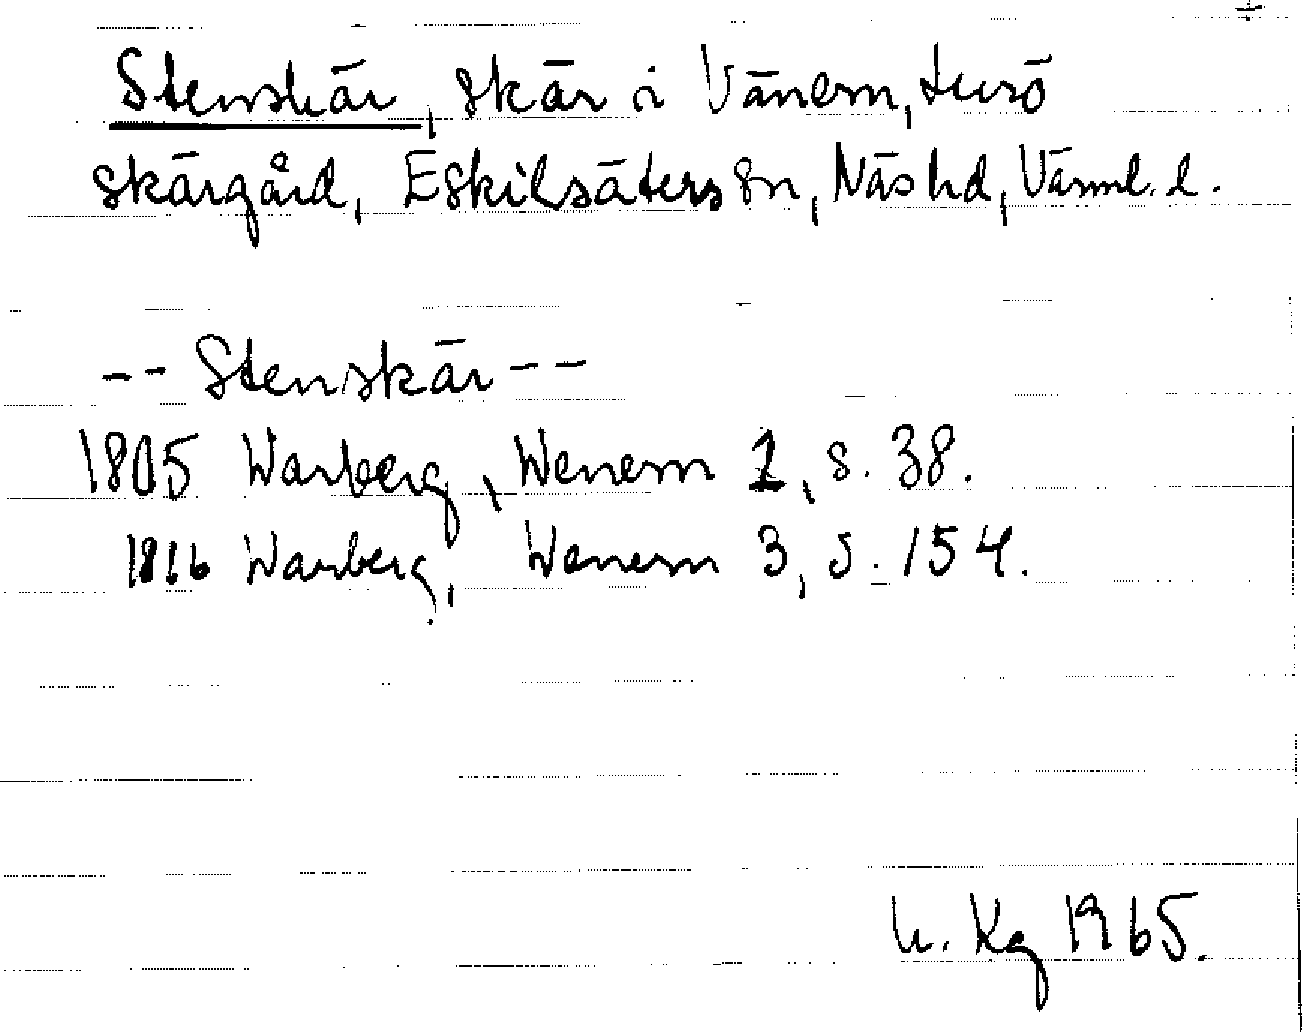 Stenskär, skär i Vänern, Lurö
skärgård, Eskilsäters sn, Näs hd, Värml. l.
-- Stenskär --
1805 Warberg, Wenern 1, s. 38.
1816 Warberg, Wenern 3, s. 154.
Kg 1965.